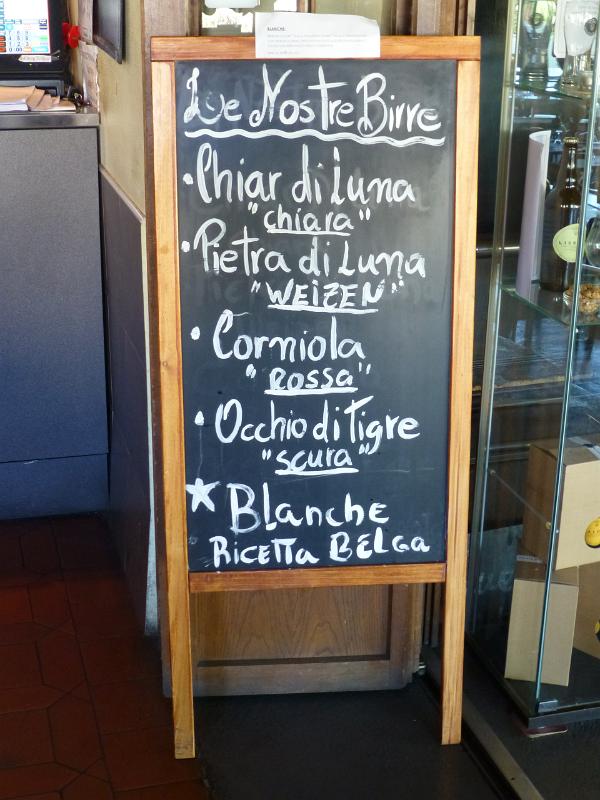 BLANCHE:
Le Nostre Birre
•Chiar di Luna
"chiara"
•Pietra di Luna
"WEIZEN"
•Corniola
"ROSSA"
•Occhio di Tigre
"scura"
★Blanche
RICETTA BELGA